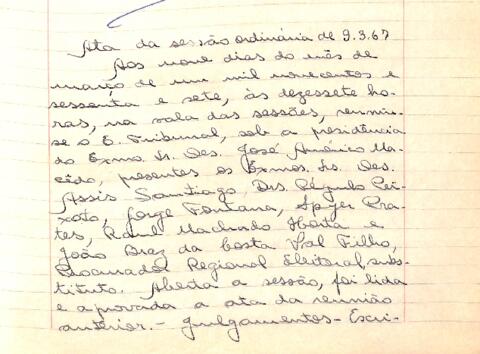 Ata da sessão ordinária de 9.3.67
Aos nove dias do mês de
março de um mil novecentos e
sessenta e sete, às dezessete ho-
ras, na sala das sessões, reuniu-
se o E. Tribunal, sob a presidência
do Exmo. Sr. Des. José Américo Ma-
cêdo, presentes os Exmos. Srs. Des.
Assis Santiago, Drs. Régulo Pei-
xoto, Jorge Fontana, Spyer Pra-
tes, Raul Machado Horta e
João Braz da Costa Val Filho,
Procurador Regional Eleitoral, subs-
tituto. Aberta a sessão, foi lida
e aprovada a ata da reunião
anterior. - Julgamentos - Escri-